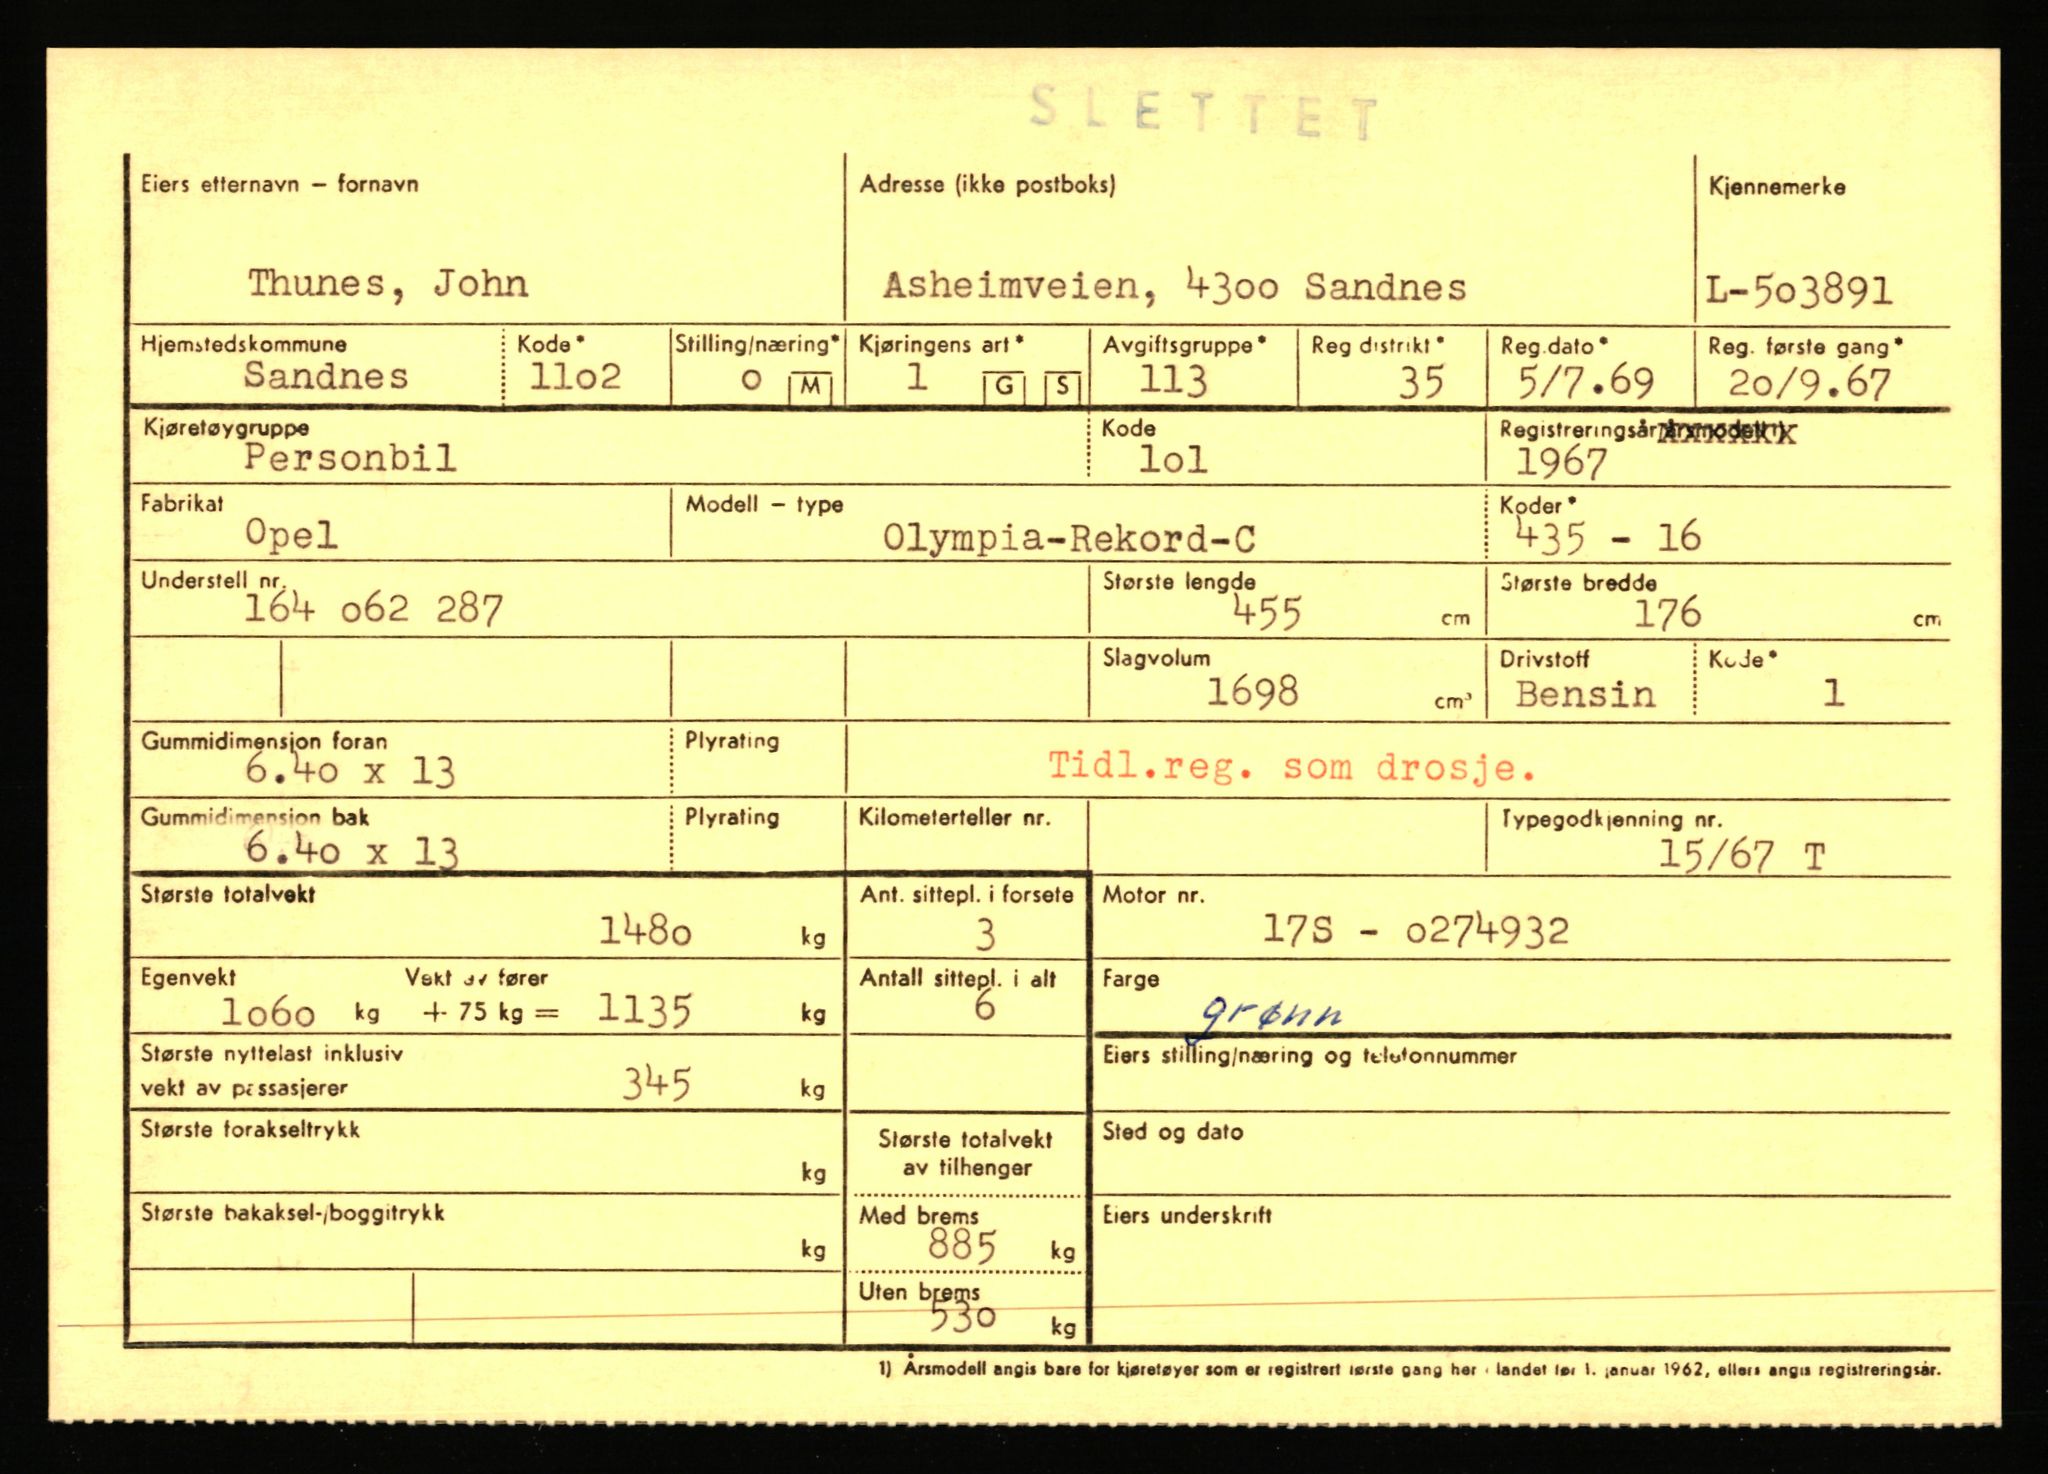 SLETTET
Eiers etternavn – fornavn Adresse (ikke postboks) Kjennemerke
Thunes, John Asheimveien, 4300 Sandnes L-503891
Hjemstedskommune Kode* Stilling/næring* Kjøringens art* Avgiftsgruppe* Reg distrikt* Reg.dato* Reg. første gang*
Sandnes 1102 0 M 1 G S 113 35 5/7.69 20/9.67
Kjøretøygruppe Kode Registreringsår
Personbil 101 1967
Fabrikat Modell – type Koder*
Opel Olympia-Rekord-C 435 - 16
Understell nr. Største lengde Største bredde
164 062 287 455 cm 176 cm
Slagvolum Drivstoff Kode*
1698 cm³ Bensin 1
Gummidimensjon foran Plyrating
6.40 x 13 Tidl.reg. som drosje.
Gummidimension bak Plyrating Kilometerteller nr. Typegodkjenning nr.
6.40 x 13 15/67 T
Største totalvekt Ant. sittepl. i forsete Motor nr.
1480 kg 3 17S - 0274932
Egenvekt Vekt av fører Antall sittepl. i alt Farge
1060 kg + 75 kg = 1135 kg 6 grønn
Største nyttelast inklusiv Eiers stilling/næring og telefonnummer
vekt av passasjerer 345 kg
Største forakseltrykk Sted og dato
kg Største totalvekt
av tilhenger
Største bakaksel-/boggitrykk Med brems Eiers underskrift
kg 885 kg
Uten brems
530 kg
1) Årsmodell angis bare for kjøretøyer som er registrert første gang her i landet før 1. januar 1962, ellers angis registreringsår.